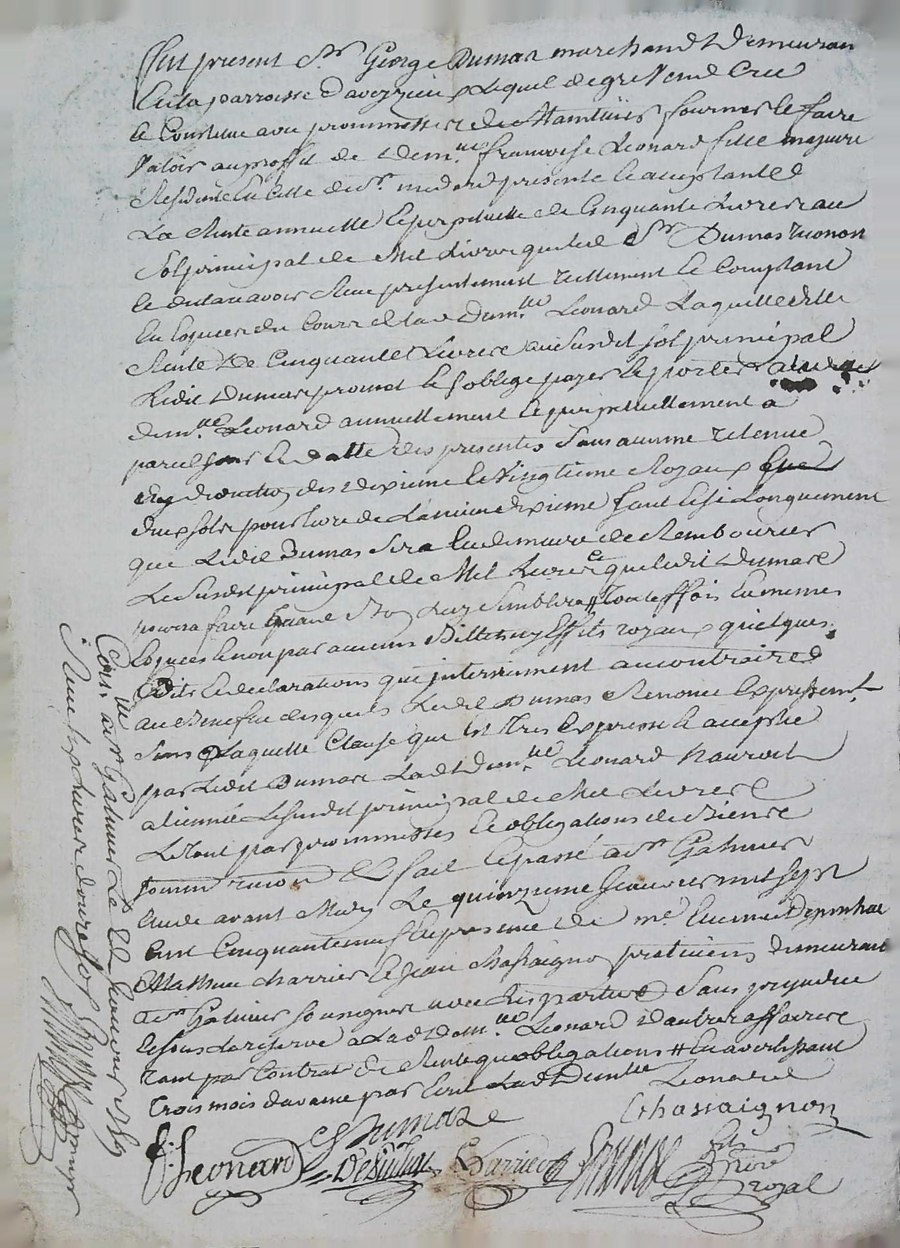 fut present Sr George Dumas marchand Demeuran
En la parroisse d'aveyzieu Lequel de gré Vend Cree
Et Constitue avec prommesse de Maintenir fournir et faire
Valoir au proffit de Demlle francoise Leonard fille majeure
Residente En Cette de St medard presente Et acceptante
La Rente annuelle Et perpetuelle de Cinquante Livres au
Sol principal de Mil Livres que led Sr Dumas reconoit
Et declare avoir Reçue presentement reellement Et Comptant
En Especes du Cours de lad Demlle Leonard Laquelle dite
Rente de Cinquante Livres au Susdit Sol principal
Ledit Dumas promet Et s'oblige payer Et porter a lad
Demlle Leonard annuellement Et perpetuellement a
pareil jour Et datte des presentes Sans aucune retenue
ny deduction des dixieme Et vingtieme Royaux
deux sols pour livre de L'ancien dixieme tant Et Si Longuement
que Ledit Dumas Sera En demeure de Rembourser
Le Susdit principal de Mil Livres Ce que ledit Dumas
pourra faire quand Bon Luy Semblera # Touteffois En memes
Especes Et non par aucuns Billets ny Effets royaux quelques
Edits Et declarations qui interviennent au contraire
au Benefice desquels Ledit Dumas Renonce Expressemt
Sans Laquelle Clause qui Est Tres Expresse Et acceptée
par Ledit Dumas Lad Demlle Leonard N'auroit
aliennée Lesusdit principal de Mil Livres
Le Tout par prommesses Et obligations de Biens
Soumn renon Et fait Et passé a St Galmier
Etude avant Midy Le quinzieme Janvier mil Sept
Cent Cinquanteneuf En presence de me Etienne Depinhac
Mathieu charrier Et Jean Chassaignon praticiens demeurant
a St Galmier Soussignes avec Les parties Sans prejudice
Et sous La reserve a Lad Demlle Leonard D'autres affaires
Tant par Contrats de Rente que obligations # En avertissant
Trois mois d'avance par Ecrit Lad Demlle Leonard
G Dumas
Chassaignon
f: Leonard
Charrier
nore
royal
Conlle a St Galmier Le 22 Janvier 1759
Reçu Six Livres douze sols